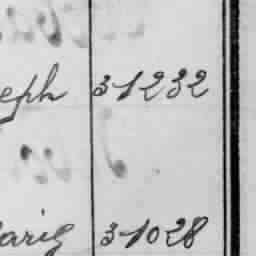 eph 3-1232
arie 3-1028